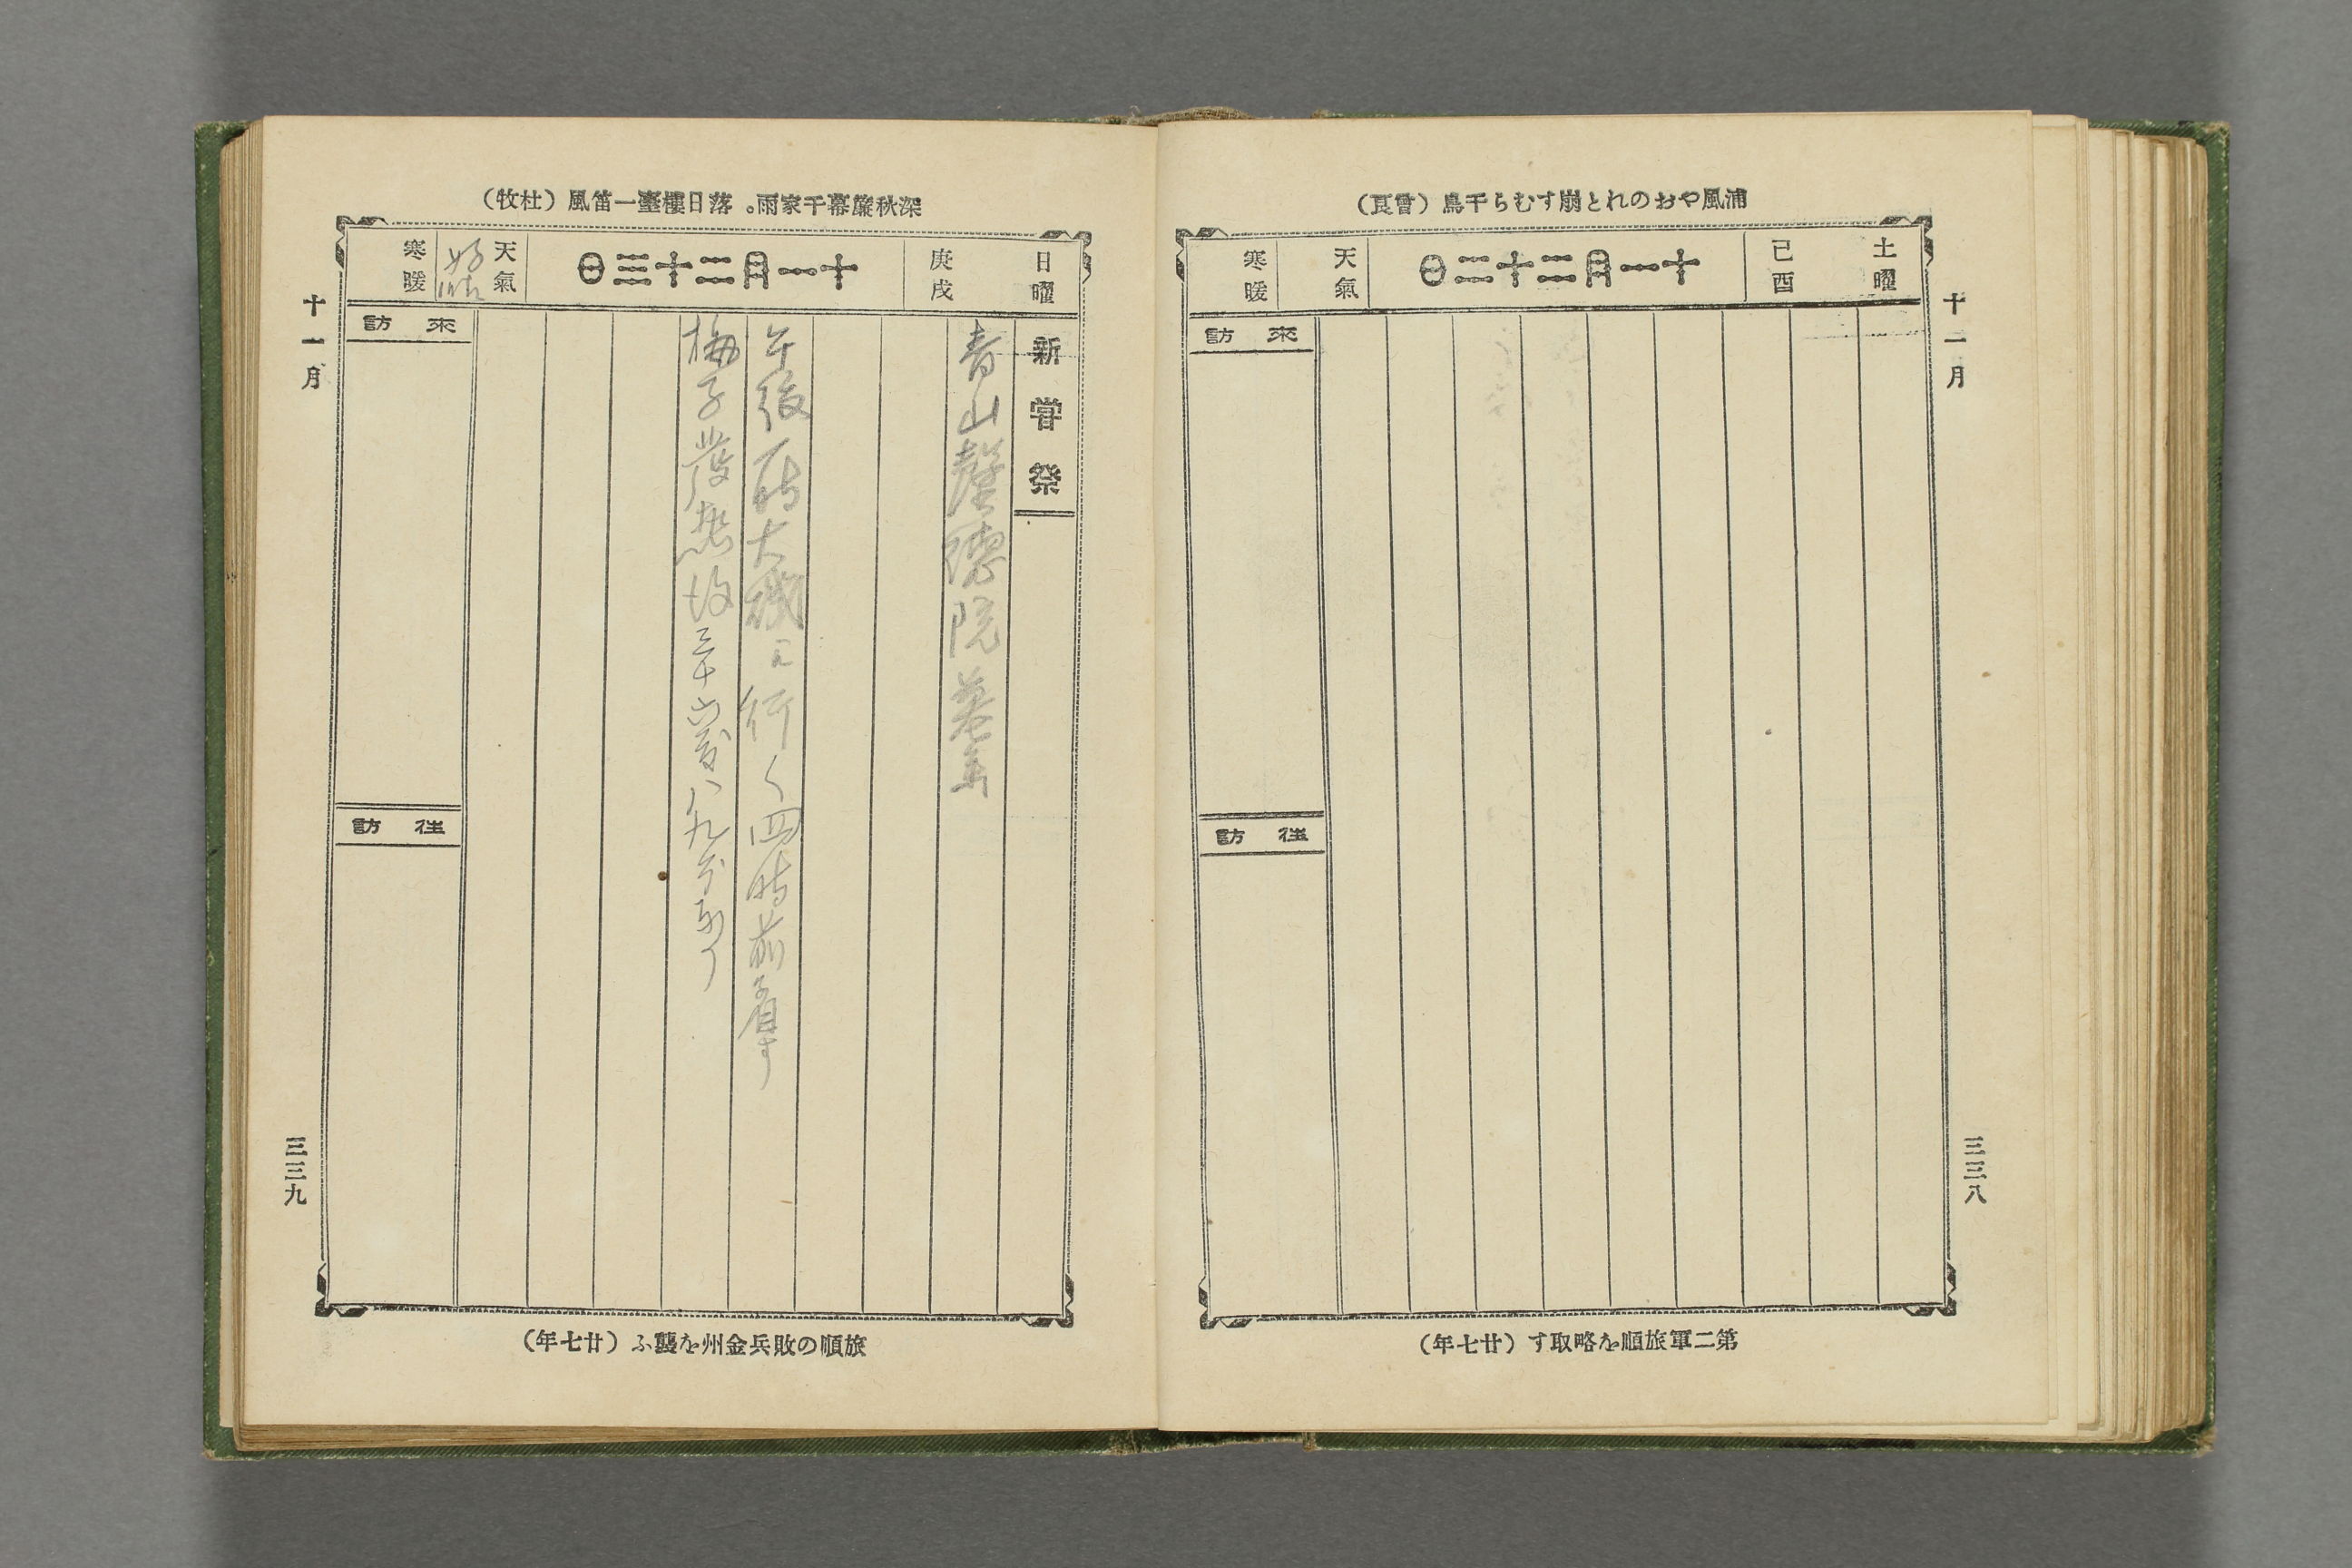 浦風やおのれと崩すむら千鳥（曾良）
土曜
己酉
十一月二十二日
天氣
寒暖
來訪
往訪
十一月
三三八
第二軍旅順を略取す（廿七年）
深秋簾幕千家雨。落日樓臺一笛風（杜牧）
日曜
庚戌
十一月二十三日
天氣
好晴
寒暖
新嘗祭
青山 院墓参
午後一時大磯ニ行く四時前着す
梅子發熱故三十六度八九分
來訪
往訪
十一月
三三九
旅順の敗兵金州を襲ふ（廿七年）